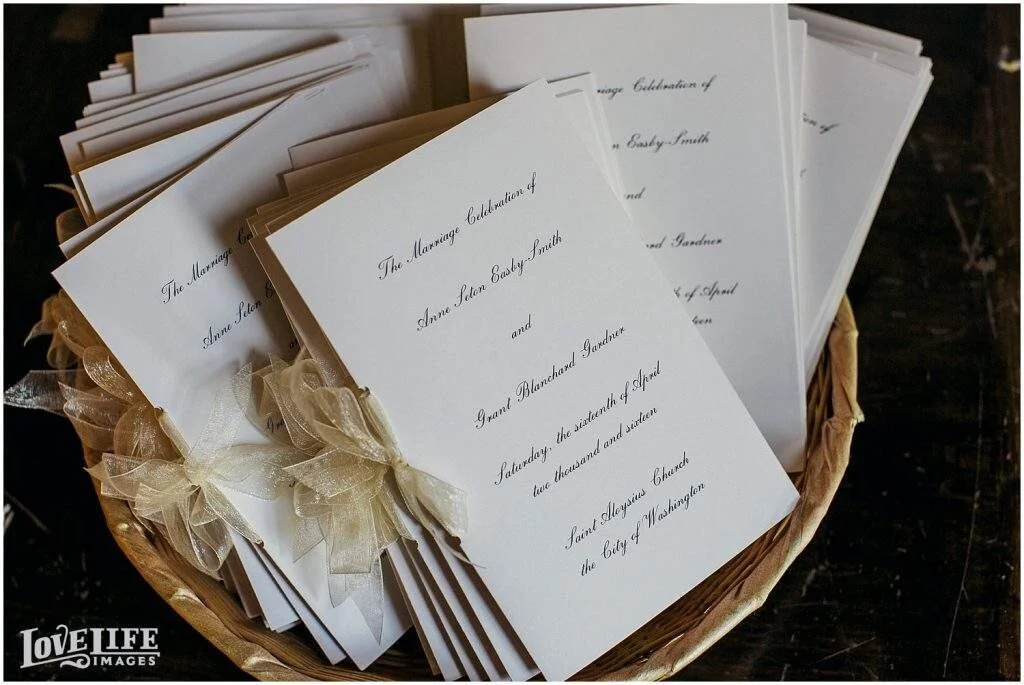 The Marriage Celebration of
Anne Seton Easby-Smith
and
Grant Blanchard Gardner
Saturday, the sixteenth of April
two thousand and sixteen
Saint Aloysius Church
the City of Washington
The Marriage
Anne Seton
Celebration of
Easby-Smith
Gardner
of April
of
LOVE LIFE
IMAGES